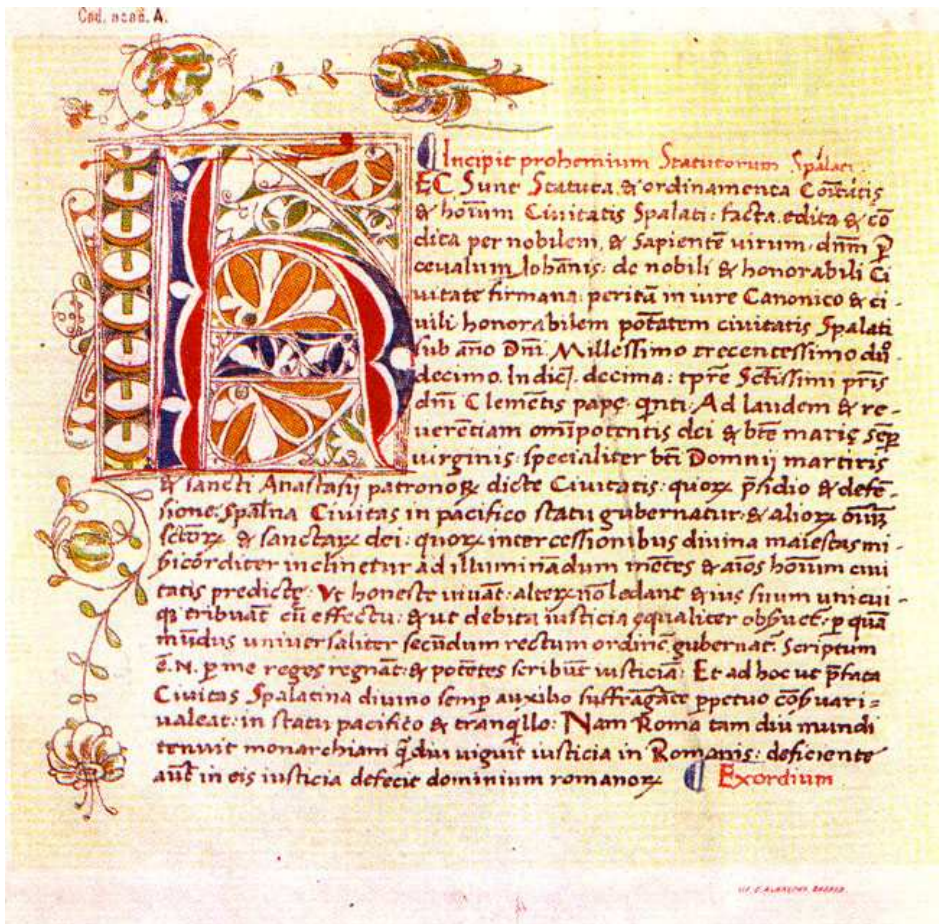 Cod. acad. A.
Incipit prohemium Statutorum Spalati
EC Sunt Statuta & ordinamenta Coitatis
& hoium Ciuitatis Spalati: facta, edita & cō
dita per nobilem, & Sapientē virum, dnm P
cevalum Iohānis: de nobili & honorabili Ci
uitate firmana: peritū in iure Canonico & ci-
uili honorabilem potātem ciuitatis Spalati
sub āno Dñi Millessimo trecentessimo duo-
decimo. Indict. decima: tpre Sctissimi pris
dñi Clemētis pape qnti. Ad laudem & re-
uerētiam omipotentis dei & bte marie semp
uirginis: specialiter bti Domnij martiris
& sancti Anastasij patronoꝝ dicte Ciuitatis: quoꝝ p̄sidio & defē-
sione, Spalna Ciuitas in pacifico statu gubernatur: & alioꝝ oium
sctoꝝ & sanctaꝝ dei: quoꝝ intercessionibus diuina maiestas mi-
sicorditer inclinetur ad illuminādum mētes & aios hoium ciui
tatis predicte. Vt honeste uiuāt: alteꝝ nō ledant & ius suum unicui-
q; tribuāt cū effectu: & ut debita iusticia equaliter obseruet: p quā
mūdus uniuersaliter secūdum rectum ordinē gubernat. Scriptum
ē. N. p me reges regnāt: & potētes scribūt iusticiā. Et ad hoc ut p̄fata
Ciuitas Spalatina diuino semp auxilio suffragāte ppetuo cōseruari=
ualeat: in statu pacifico & tranqllo: Nam Roma tam diu mundi
tenuit monarchiam q̄diu uiguit iusticia in Romanis: deficiente
aut in eis iusticia defecit dominium romanoꝝ Exordium